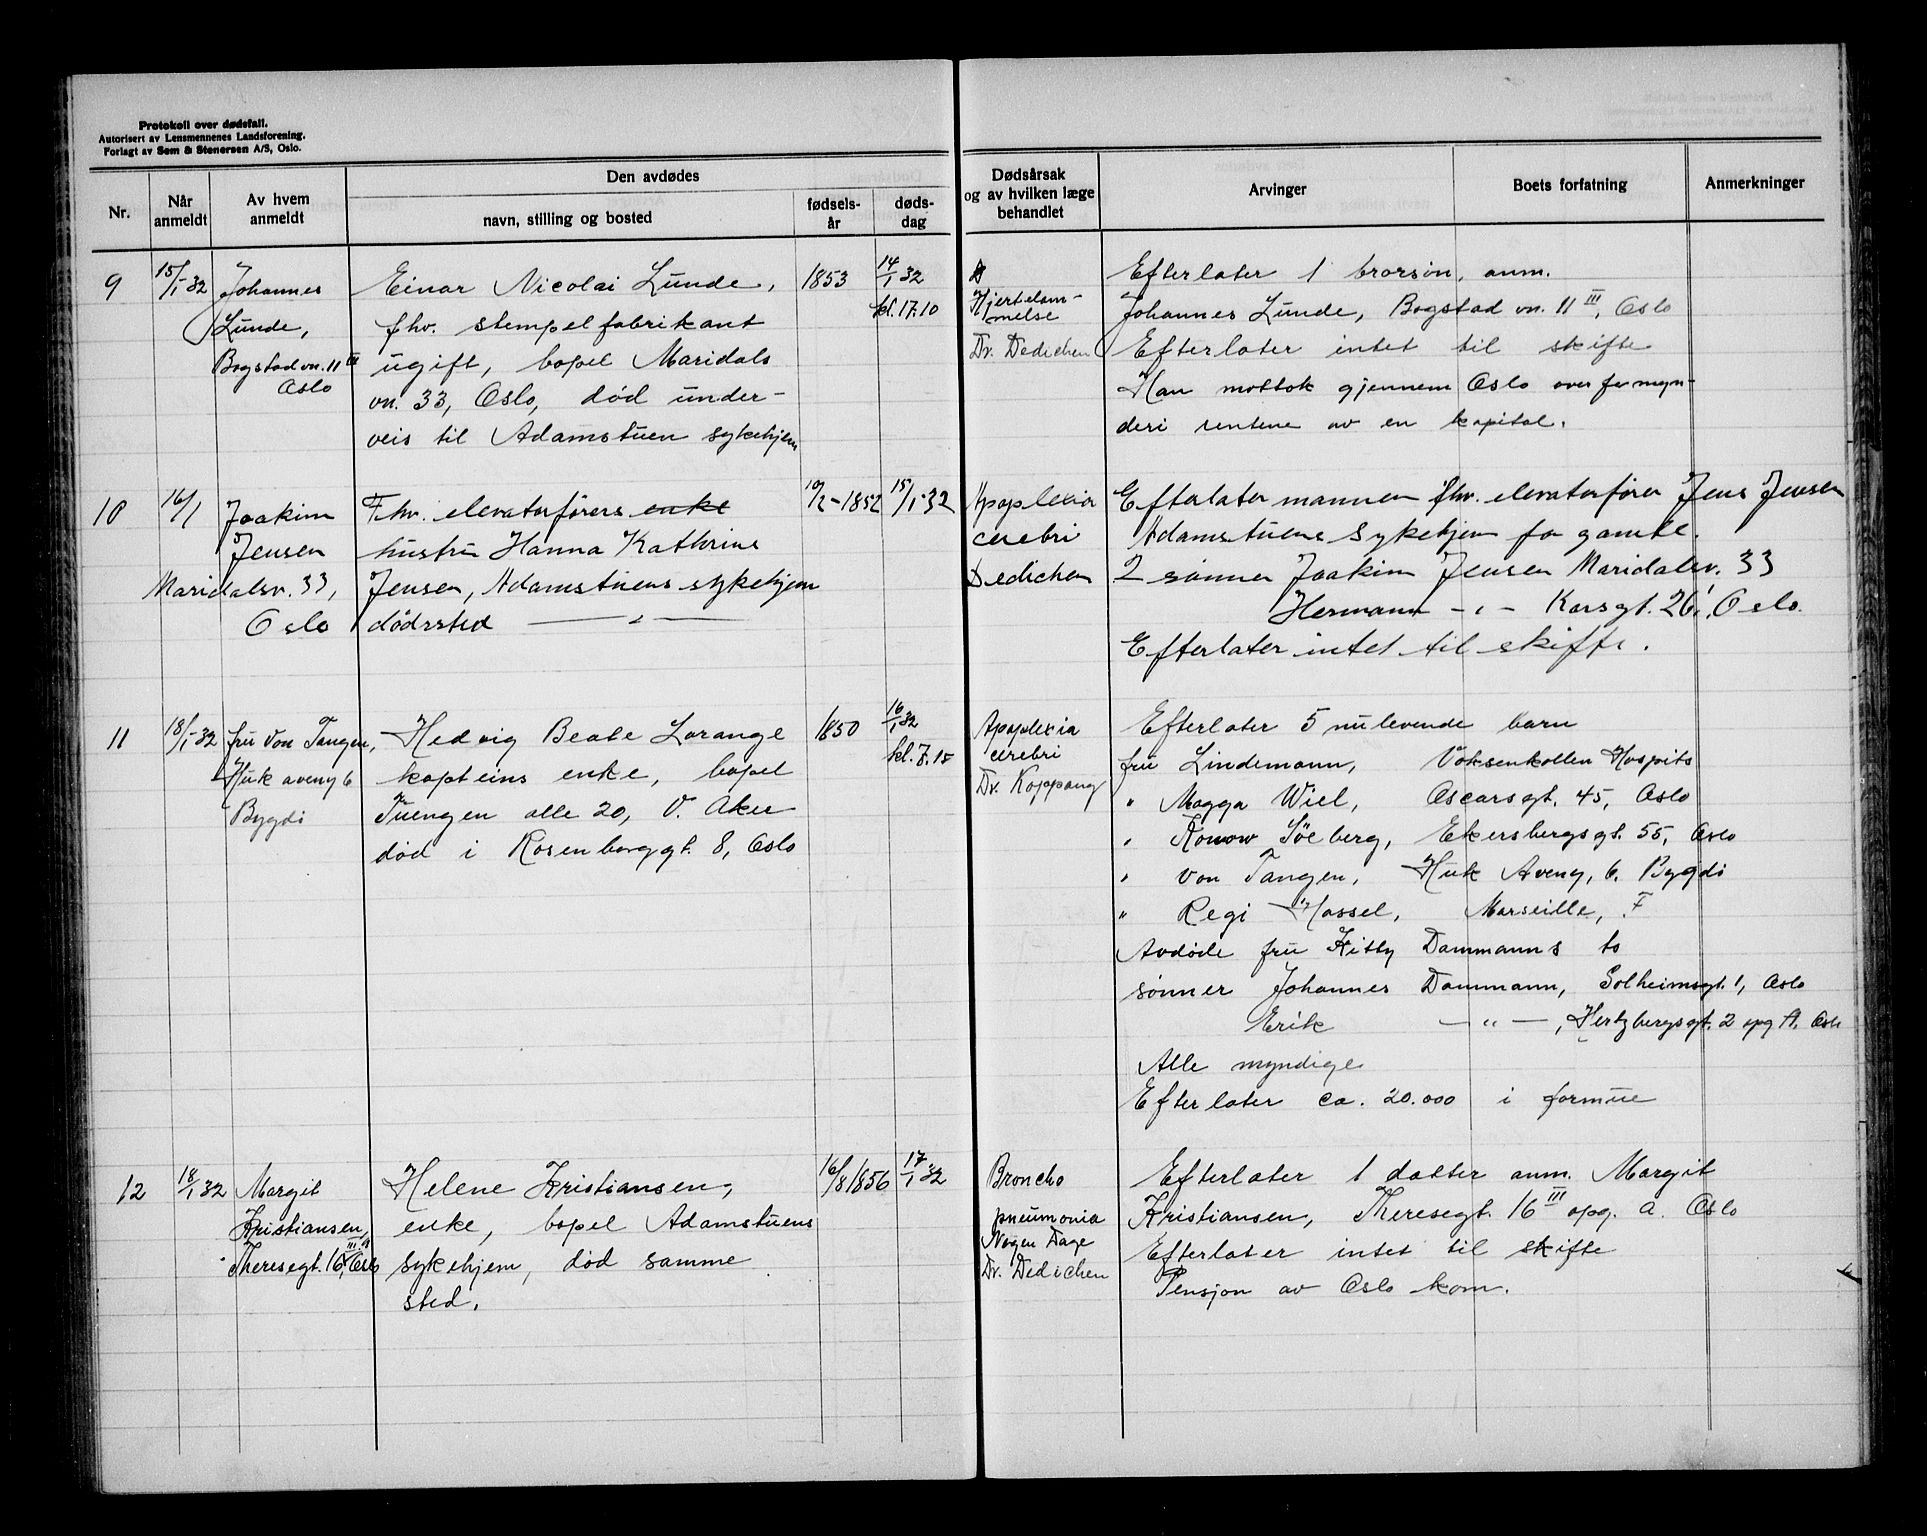 Protokoll over dødsfall.
Autorisert av Lensmennenes Landsforening.
Forlagt av Sem & Stenersen A/S, Oslo.
Nr.
Når anmeldt
Av hvem anmeldt
Den avdødes
navn, stilling og bosted
fødsels-år
døds-dag
Dødsårsak og av hvilken læge behandlet
Arvinger
Boets forfatning
Anmerkninger
9
15/1-32
Johannes
Lunde,
Bogstadvn. 11 III
Oslo
Einar Nicolai Lunde,
fhv. stempelfabrikant
ugift, bopel Maridals
vn. 33, Oslo, død under-
veis til Adamstuen sykehjem
1853
14/1 32
kl. 17.10
Hjertelam-
melse
Dr. Dedichen
Efterlater 1 brorsøn, anm.
Johannes Lunde, Bogstad vn. 11 III, Oslo
Efterlater intet til skifte
Han mottok gjennem Oslo overformyn-
deri rentene av en kapital.
10
16/1
Joakim
Jensen
Maridalsv. 33,
Oslo
Fhv. elevatorførers enke
hustru Hanna Kathrine
Jensen, Adamstuens sykehjem
dödssted — " —
10/2-1852
15/1-32
Apoplexia
cerebri
Dedichen
Efterlater mannen fhv. elevatorfører Jens Jensen
Adamstuens Sykehjem for gamle.
2 sønner Joakim Jensen Maridalsv. 33
Hermann - " - Korsgt. 26 I, Oslo.
Efterlater intet til skifte.
11
18/1-32
fru von Tangen,
Huk aveny 6
Bygdö
Hedvig Beate Lorange
kapteins enke, bopel
Tuengen alle 20, V. Aker
død i Rosenborggt. 8, Oslo
1850
16/1 32
kl. 7.15
Apoplexia
cerebri
Dr. Koppang
Efterlater 5 nulevende barn
fru Lindemann, Voksenkollen Hospits
" Magga Wiel, Oscarsgt. 45, Oslo
" Konow Söeberg, Ekersbergsgt. 55, Oslo
" von Tangen, Huk Aveny, 6. Bygdö
" Regi Hassel, Marseille, F
Avdøde fru Kitty Dammanns to
sønner Johannes Dammann, Solheimsgt. 1, Oslo
Erik — " —, Hertzbergsgt. 2 opg A. Oslo
Alle myndige
Efterlater ca. 20.000 i formue
12
18/1 32
Margit
Kristiansen,
Theresegt. 16 III a, Oslo
Helene Kristiansen,
enke, bopel Adamstuens
sykehjem, død samme
sted.
16/8 1856
17/1 32
Broncho
pneumonia
Nogen Dage
Dr. Dedichen
Efterlater 1 datter anm. Margit
Kristiansen, Theresegt. 16 III opg. a. Oslo
Efterlater intet til skifte
Pensjon av Oslo kom.